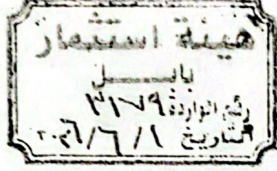 هيئة استثمار
بابـــــل
رقم الواردة ٣١٧٩
التاريخ ٦/١